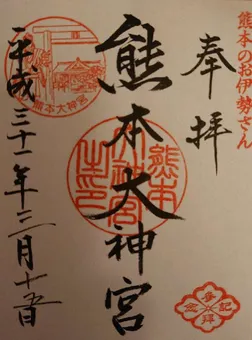 熊本のお伊勢さん
奉拝
熊本大神宮
平成三十一年二月十五日
熊本大神宮
熊本大神宮之印
参拝記念